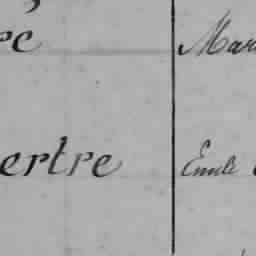 re Mar
ertre Emile